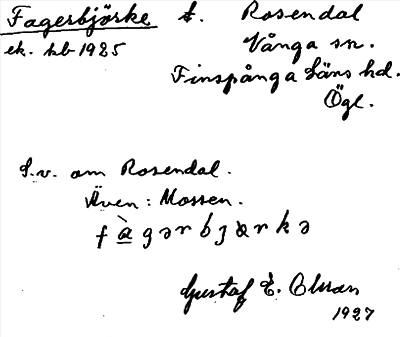 Fagerbjörke t. Rosendal
ek. kb 1925 Vånga sn.
Finspånga läns hd.
Ögl.
S.v. om Rosendal.
Även: Mossen.
Gustaf E. Olsson
1927